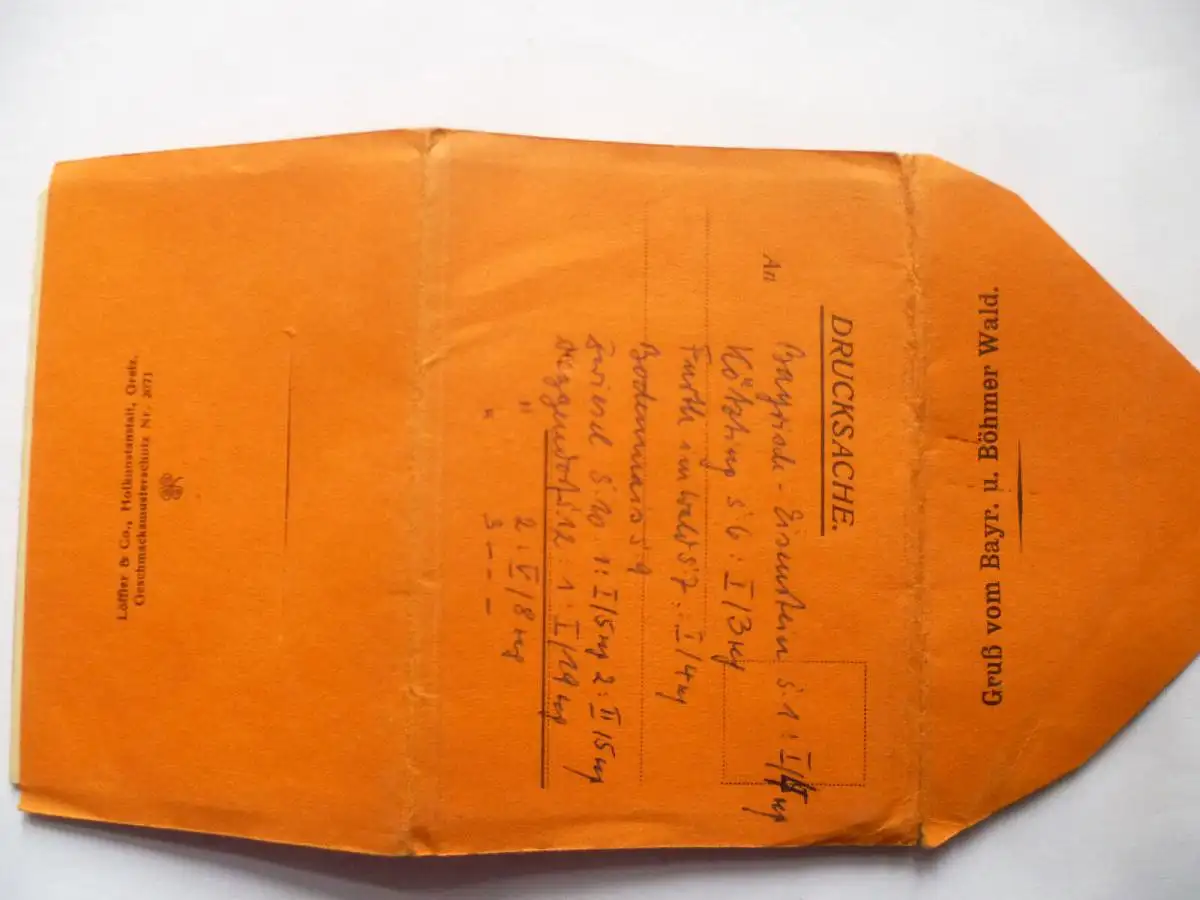 Gruß vom Bayr. u. Böhmer Wald.
DRUCKSACHE.
An
Bayrisch-Eisenstein S. 1: I/
Kötzting S 6: I/3
Furth im Wald S 7: I/4
Bodenmais S 9
Zwiesel S. 10 1: I/5 2: II/5
Deggendorf S 12: 1. I/
" 2. V/8
" 3 - - -
Löffler & Co., Hofkunstanstalt, Greiz.
Geschmacksmusterschutz Nr. 2071